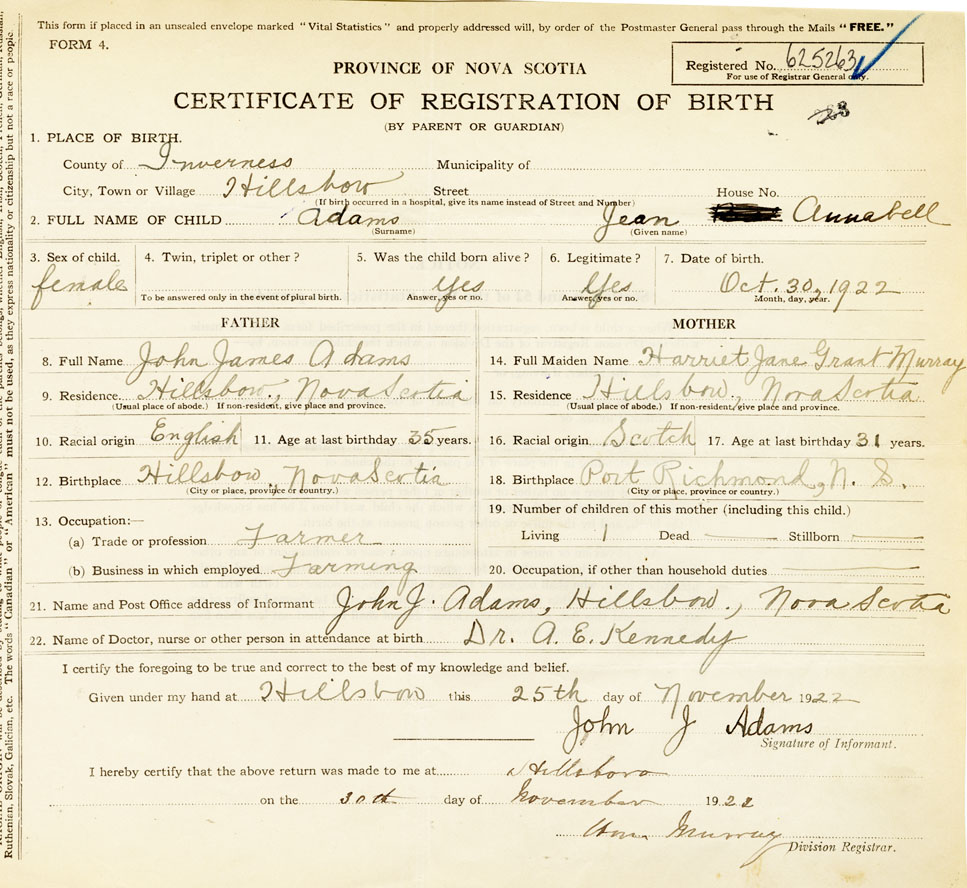 This form if placed in an unsealed envelope marked "Vital Statistics" and properly addressed will, by order of the Postmaster General pass through the Mails "FREE."
FORM 4.
Registered No. 625263
For use of Registrar General only.
PROVINCE OF NOVA SCOTIA
CERTIFICATE OF REGISTRATION OF BIRTH
(BY PARENT OR GUARDIAN)
1. PLACE OF BIRTH.
County of Inverness Municipality of
City, Town or Village Hillsboro Street House No.
(If birth occurred in a hospital, give its name instead of Street and Number)
2. FULL NAME OF CHILD Adams Jean Annabell
(Surname) (Given name)
3. Sex of child. 4. Twin, triplet or other? 5. Was the child born alive? 6. Legitimate? 7. Date of birth.
female Yes Yes Oct. 30, 1922
To be answered only in the event of plural birth. Answer, yes or no. Answer, yes or no. Month, day, year.
FATHER MOTHER
8. Full Name John James Adams 14. Full Maiden Name Harriet Jane Grant Murray
9. Residence Hillsboro., Nova Scotia 15. Residence Hillsboro., Nova Scotia
(Usual place of abode.) If non-resident, give place and province. (Usual place of abode.) If non-resident, give place and province.
10. Racial origin English 11. Age at last birthday 35 years. 16. Racial origin Scotch 17. Age at last birthday 31 years.
12. Birthplace Hillsboro, Nova Scotia 18. Birthplace Port Richmond, N. S.
(City or place, province or country.) (City or place, province or country.)
13. Occupation:— 19. Number of children of this mother (including this child.)
(a) Trade or profession Farmer Living 1 Dead — Stillborn —
(b) Business in which employed Farming 20. Occupation, if other than household duties —
21. Name and Post Office address of Informant John J. Adams, Hillsboro., Nova Scotia
22. Name of Doctor, nurse or other person in attendance at birth Dr. A. E. Kennedy
I certify the foregoing to be true and correct to the best of my knowledge and belief.
Given under my hand at Hillsboro this 25th day of November 1922
John J Adams
Signature of Informant.
I hereby certify that the above return was made to me at Hillsboro
on the 30th day of November 1922
Wm. Murray
Division Registrar.
Ruthenian, Slovak, Galician, etc. The words "Canadian" or "American" must not be used, as they express nationality or citizenship but not a race or people